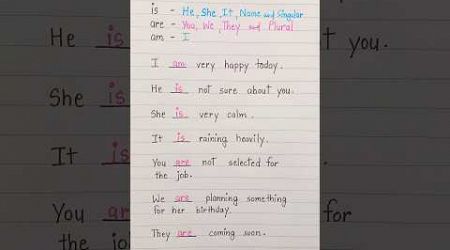 is - He, She, It, Name and Singular
are - You, We, They and Plural
am - I
I am very happy today.
He is not sure about you.
She is very calm.
It is raining heavily.
You are not selected for
the job.
We are planning something
for her birthday.
They are coming soon.
He is
t you.
She is
It is
You are
for
the job